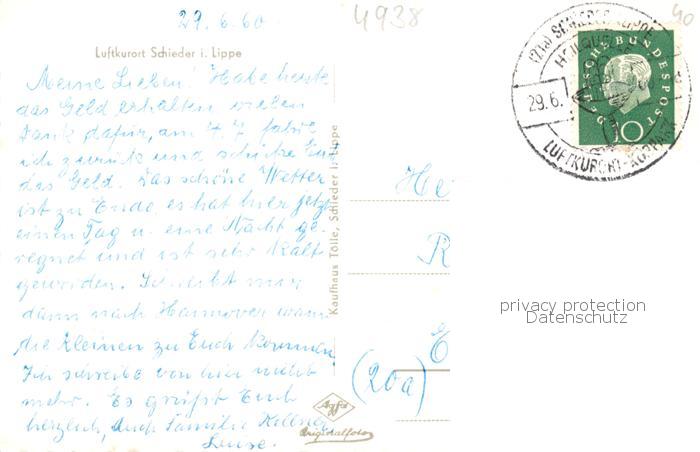 29.6.60
4938
40
Luftkurort Schieder i. Lippe
Meine Lieben! Habe heute
das Geld erhalten vielen
Dank dafür, am 4.7. fahre
ich zurück und schicke Euch
das Geld. Das schöne Wetter
ist zu Ende es hat hier jetzt
einen Tag u. eine Nacht ge-
regnet und ist sehr kalt
geworden. Schreibt mir
dann nach Hannover wann
die Kleinen zu Euch kommen
Ich schreibe von hier nicht
mehr. Es grüßt Euch
herzlich, auch Familie
Luise.
Kaufhaus Tölle, Schieder i. Lippe
Agfa
Originalfoto
He
R
E
(20a)
29.6.
LUFTKURORT
DEUTSCHE BUNDESPOST
10
privacy protection
Datenschutz